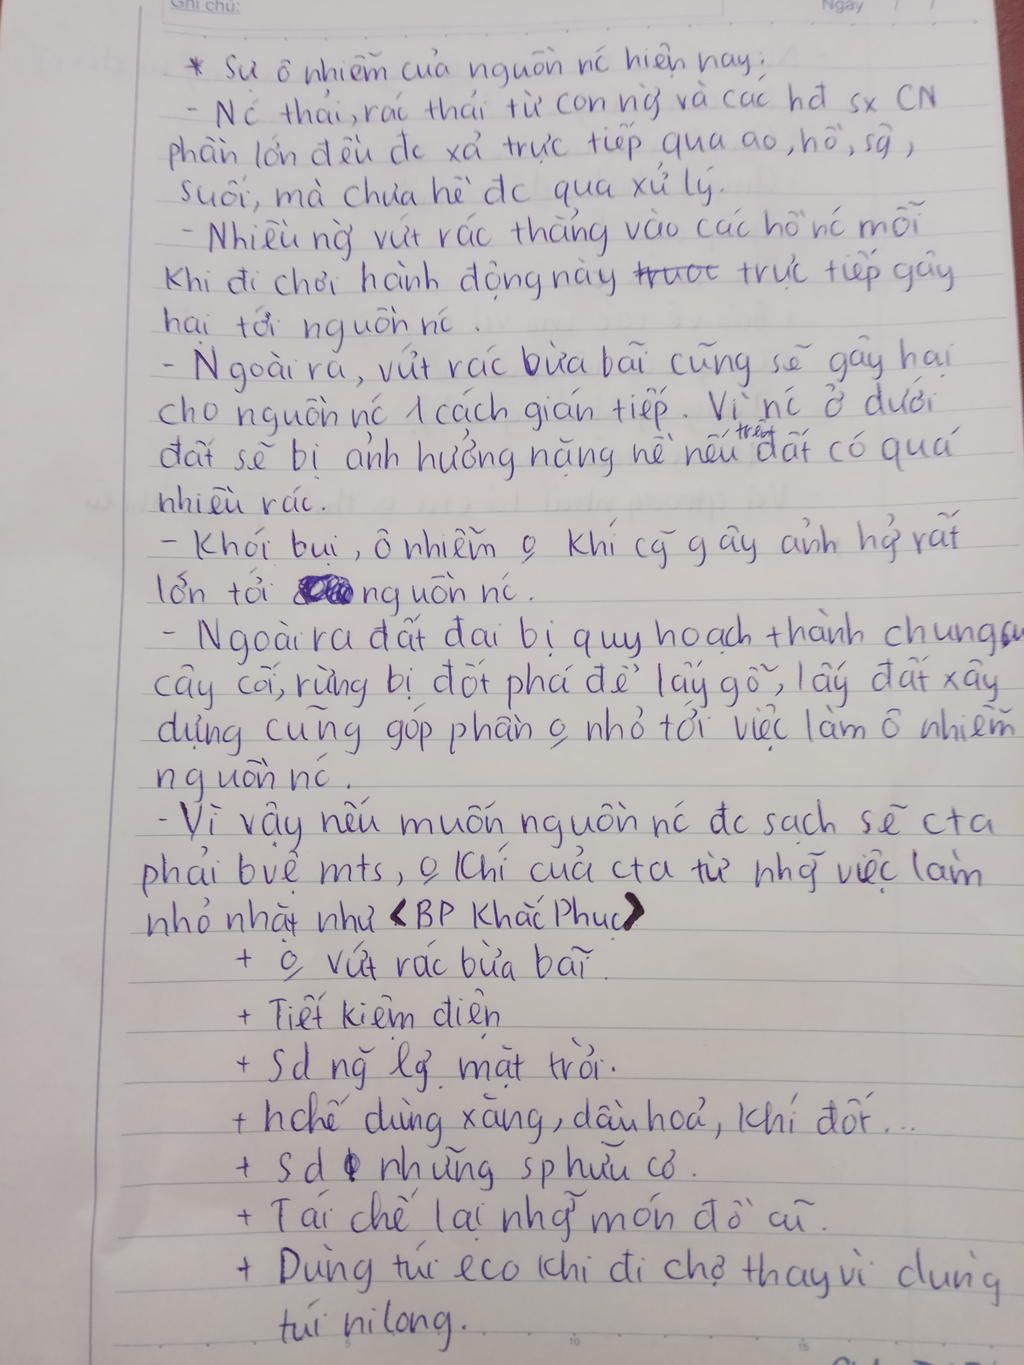 Ghi chú:
Ngày / /
* Sự ô nhiễm của nguồn nc hiện nay:
- Nc thải, rác thải từ con ng và các hđ sx CN
phần lớn đều đc xả trực tiếp qua ao, hồ, sg,
suối, mà chưa hề đc qua xử lý.
- Nhiều ng vứt rác thẳng vào các hồ nc mỗi
khi đi chơi hành động này trực tiếp gây
hại tới nguồn nc.
- Ngoài ra, vứt rác bừa bãi cũng sẽ gây hại
cho nguồn nc 1 cách gián tiếp. Vì nc ở dưới
đất sẽ bị ảnh hưởng nặng nề nếu trên đất có quá
nhiều rác.
- Khói bụi, ô nhiễm o khí cg gây ảnh hg rất
lớn tới nguồn nc.
- Ngoài ra đất đai bị quy hoạch thành chung cư
cây cối, rừng bị đốt phá để lấy gỗ, lấy đất xây
dựng cũng góp phần o nhỏ tới việc làm ô nhiễm
nguồn nc.
- Vì vậy nếu muốn nguồn nc đc sạch sẽ cta
phải bvệ mts, o khí của cta từ nhg việc làm
nhỏ nhặt như <BP Khắc Phục>
+ o vứt rác bừa bãi.
+ Tiết kiệm điện
+ Sd ng lg mặt trời.
+ hchế dùng xăng, dầu hoả, khí đốt...
+ Sd những sp hữu cơ.
+ Tái chế lại nhg món đồ cũ.
+ Dùng túi eco khi đi chợ thay vì dùng
túi nilong.